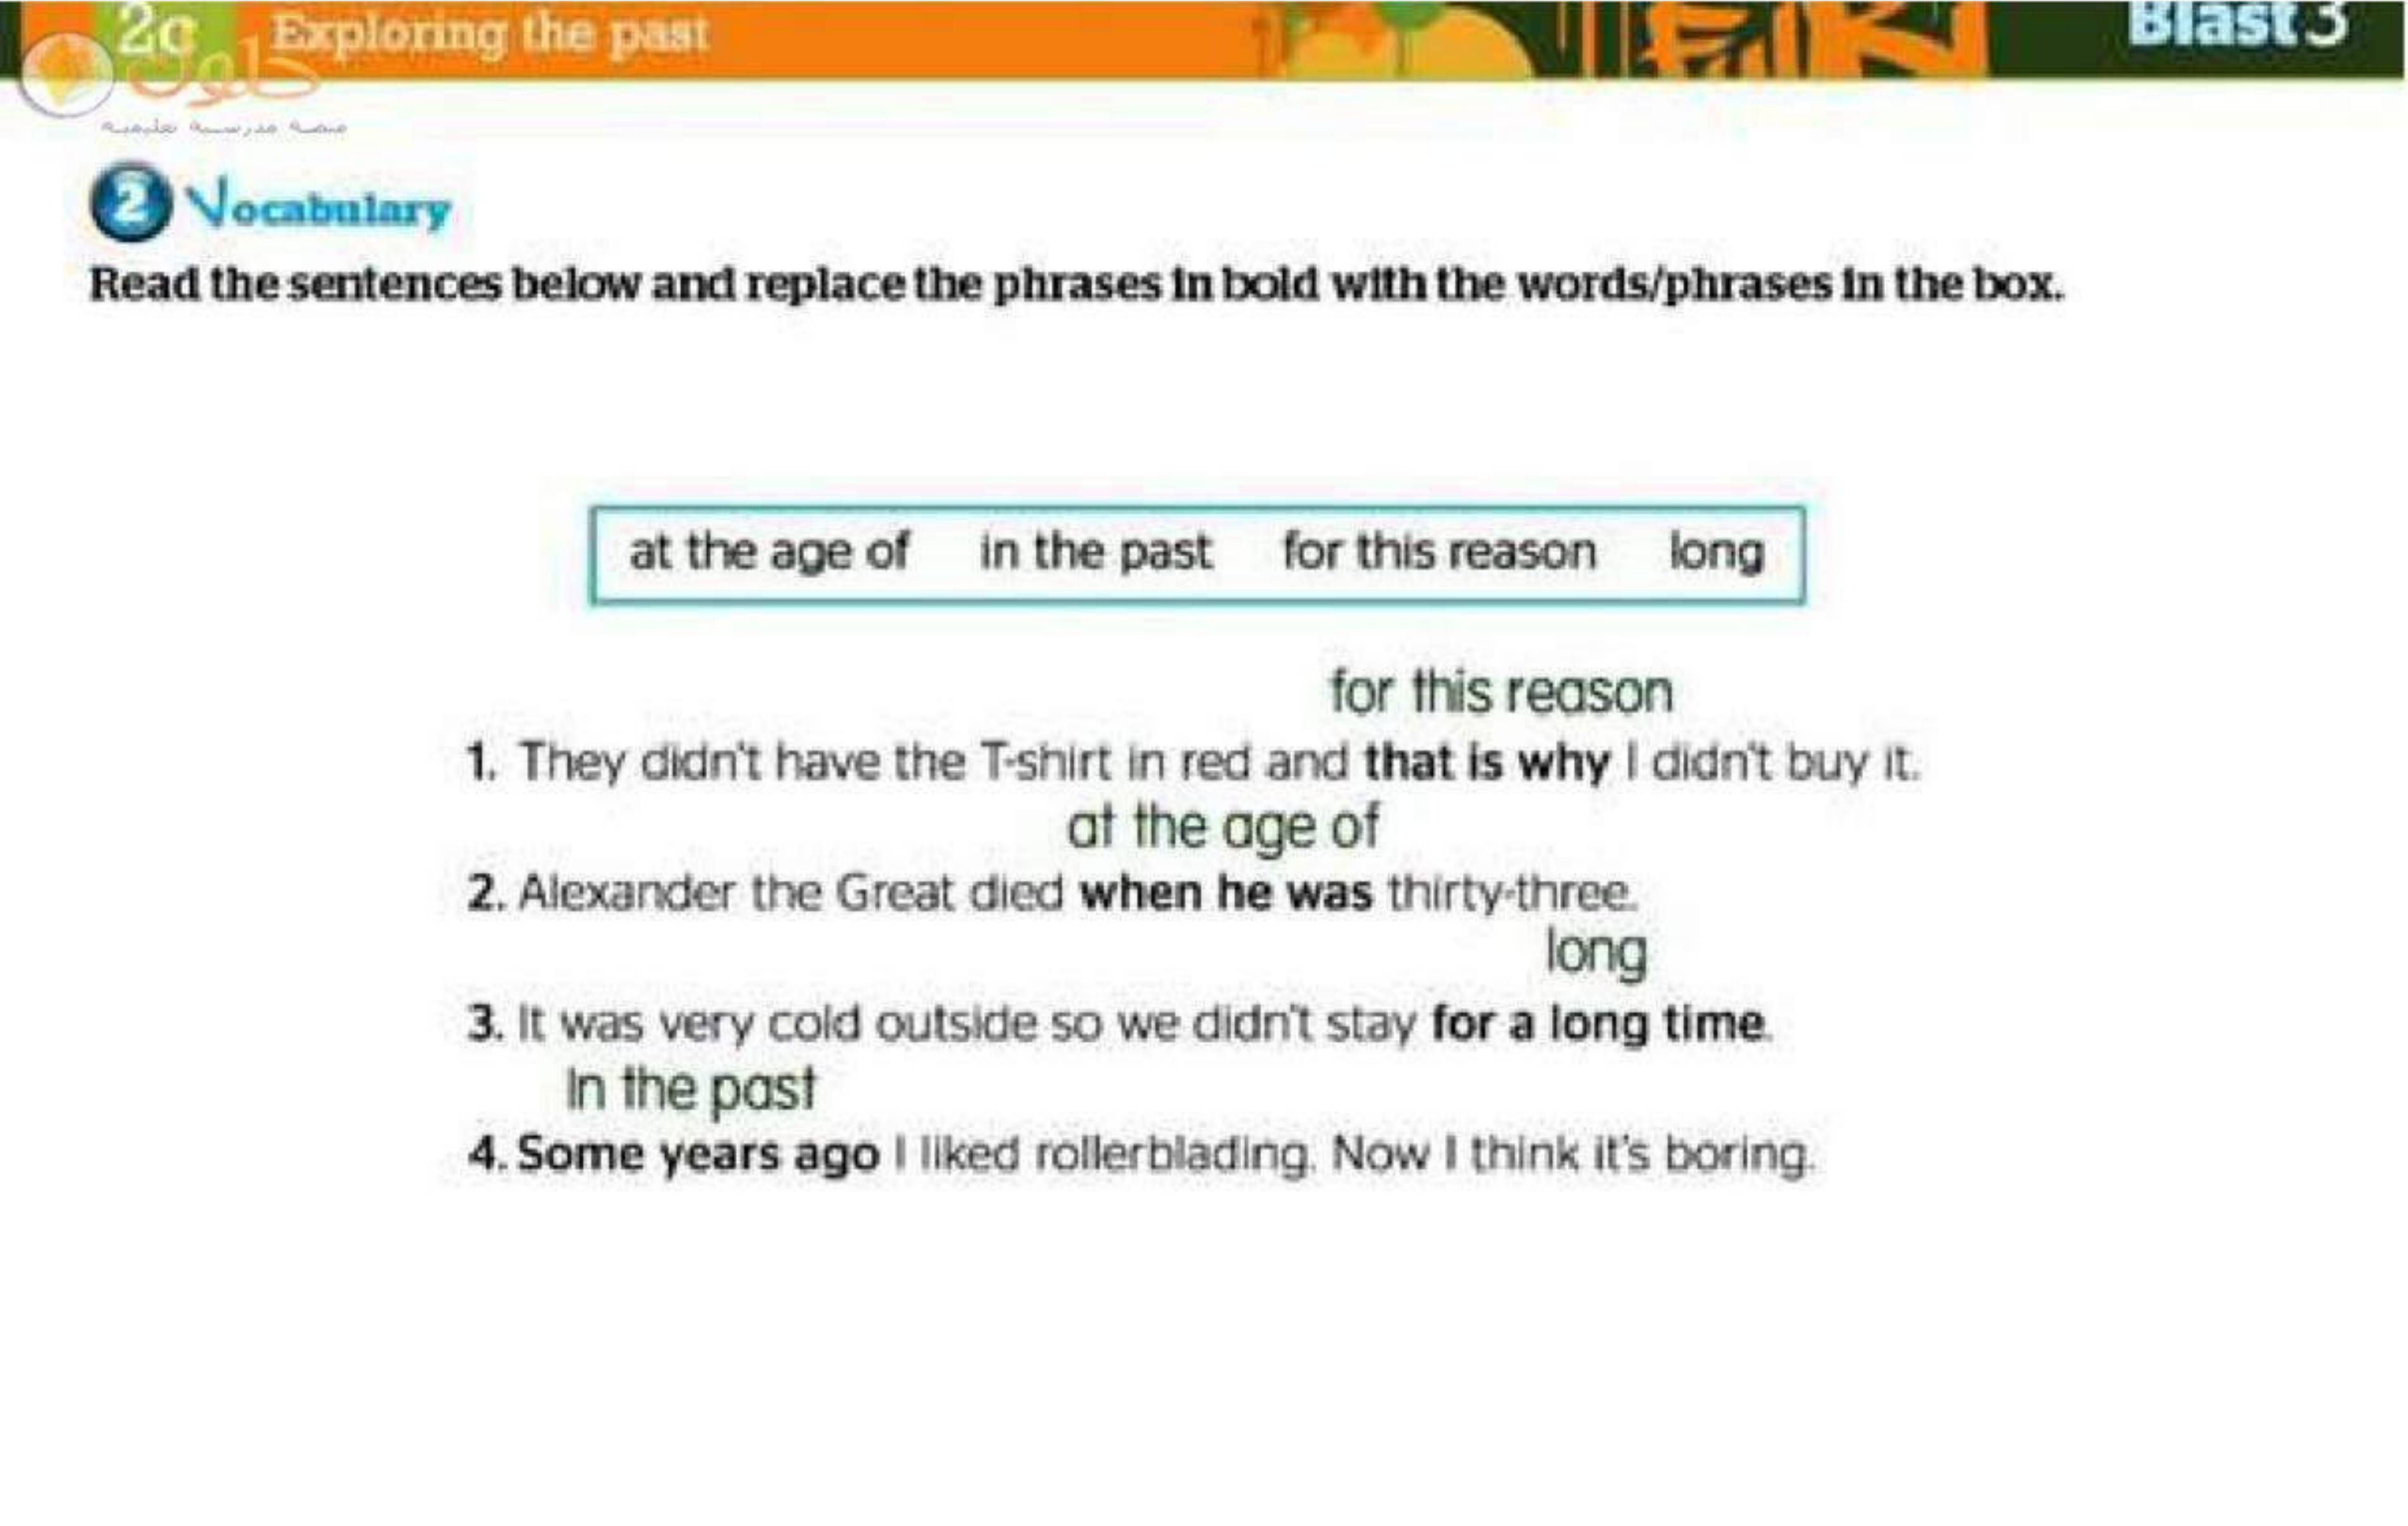 2c Exploring the past
Blast 3
حلول
منصة مدرستية تعليمية
2 Vocabulary
Read the sentences below and replace the phrases in bold with the words/phrases in the box.
at the age of in the past for this reason long
for this reason
1. They didn't have the T-shirt in red and that is why I didn't buy it.
at the age of
2. Alexander the Great died when he was thirty-three.
long
3. It was very cold outside so we didn't stay for a long time.
In the past
4. Some years ago I liked rollerblading. Now I think it's boring.